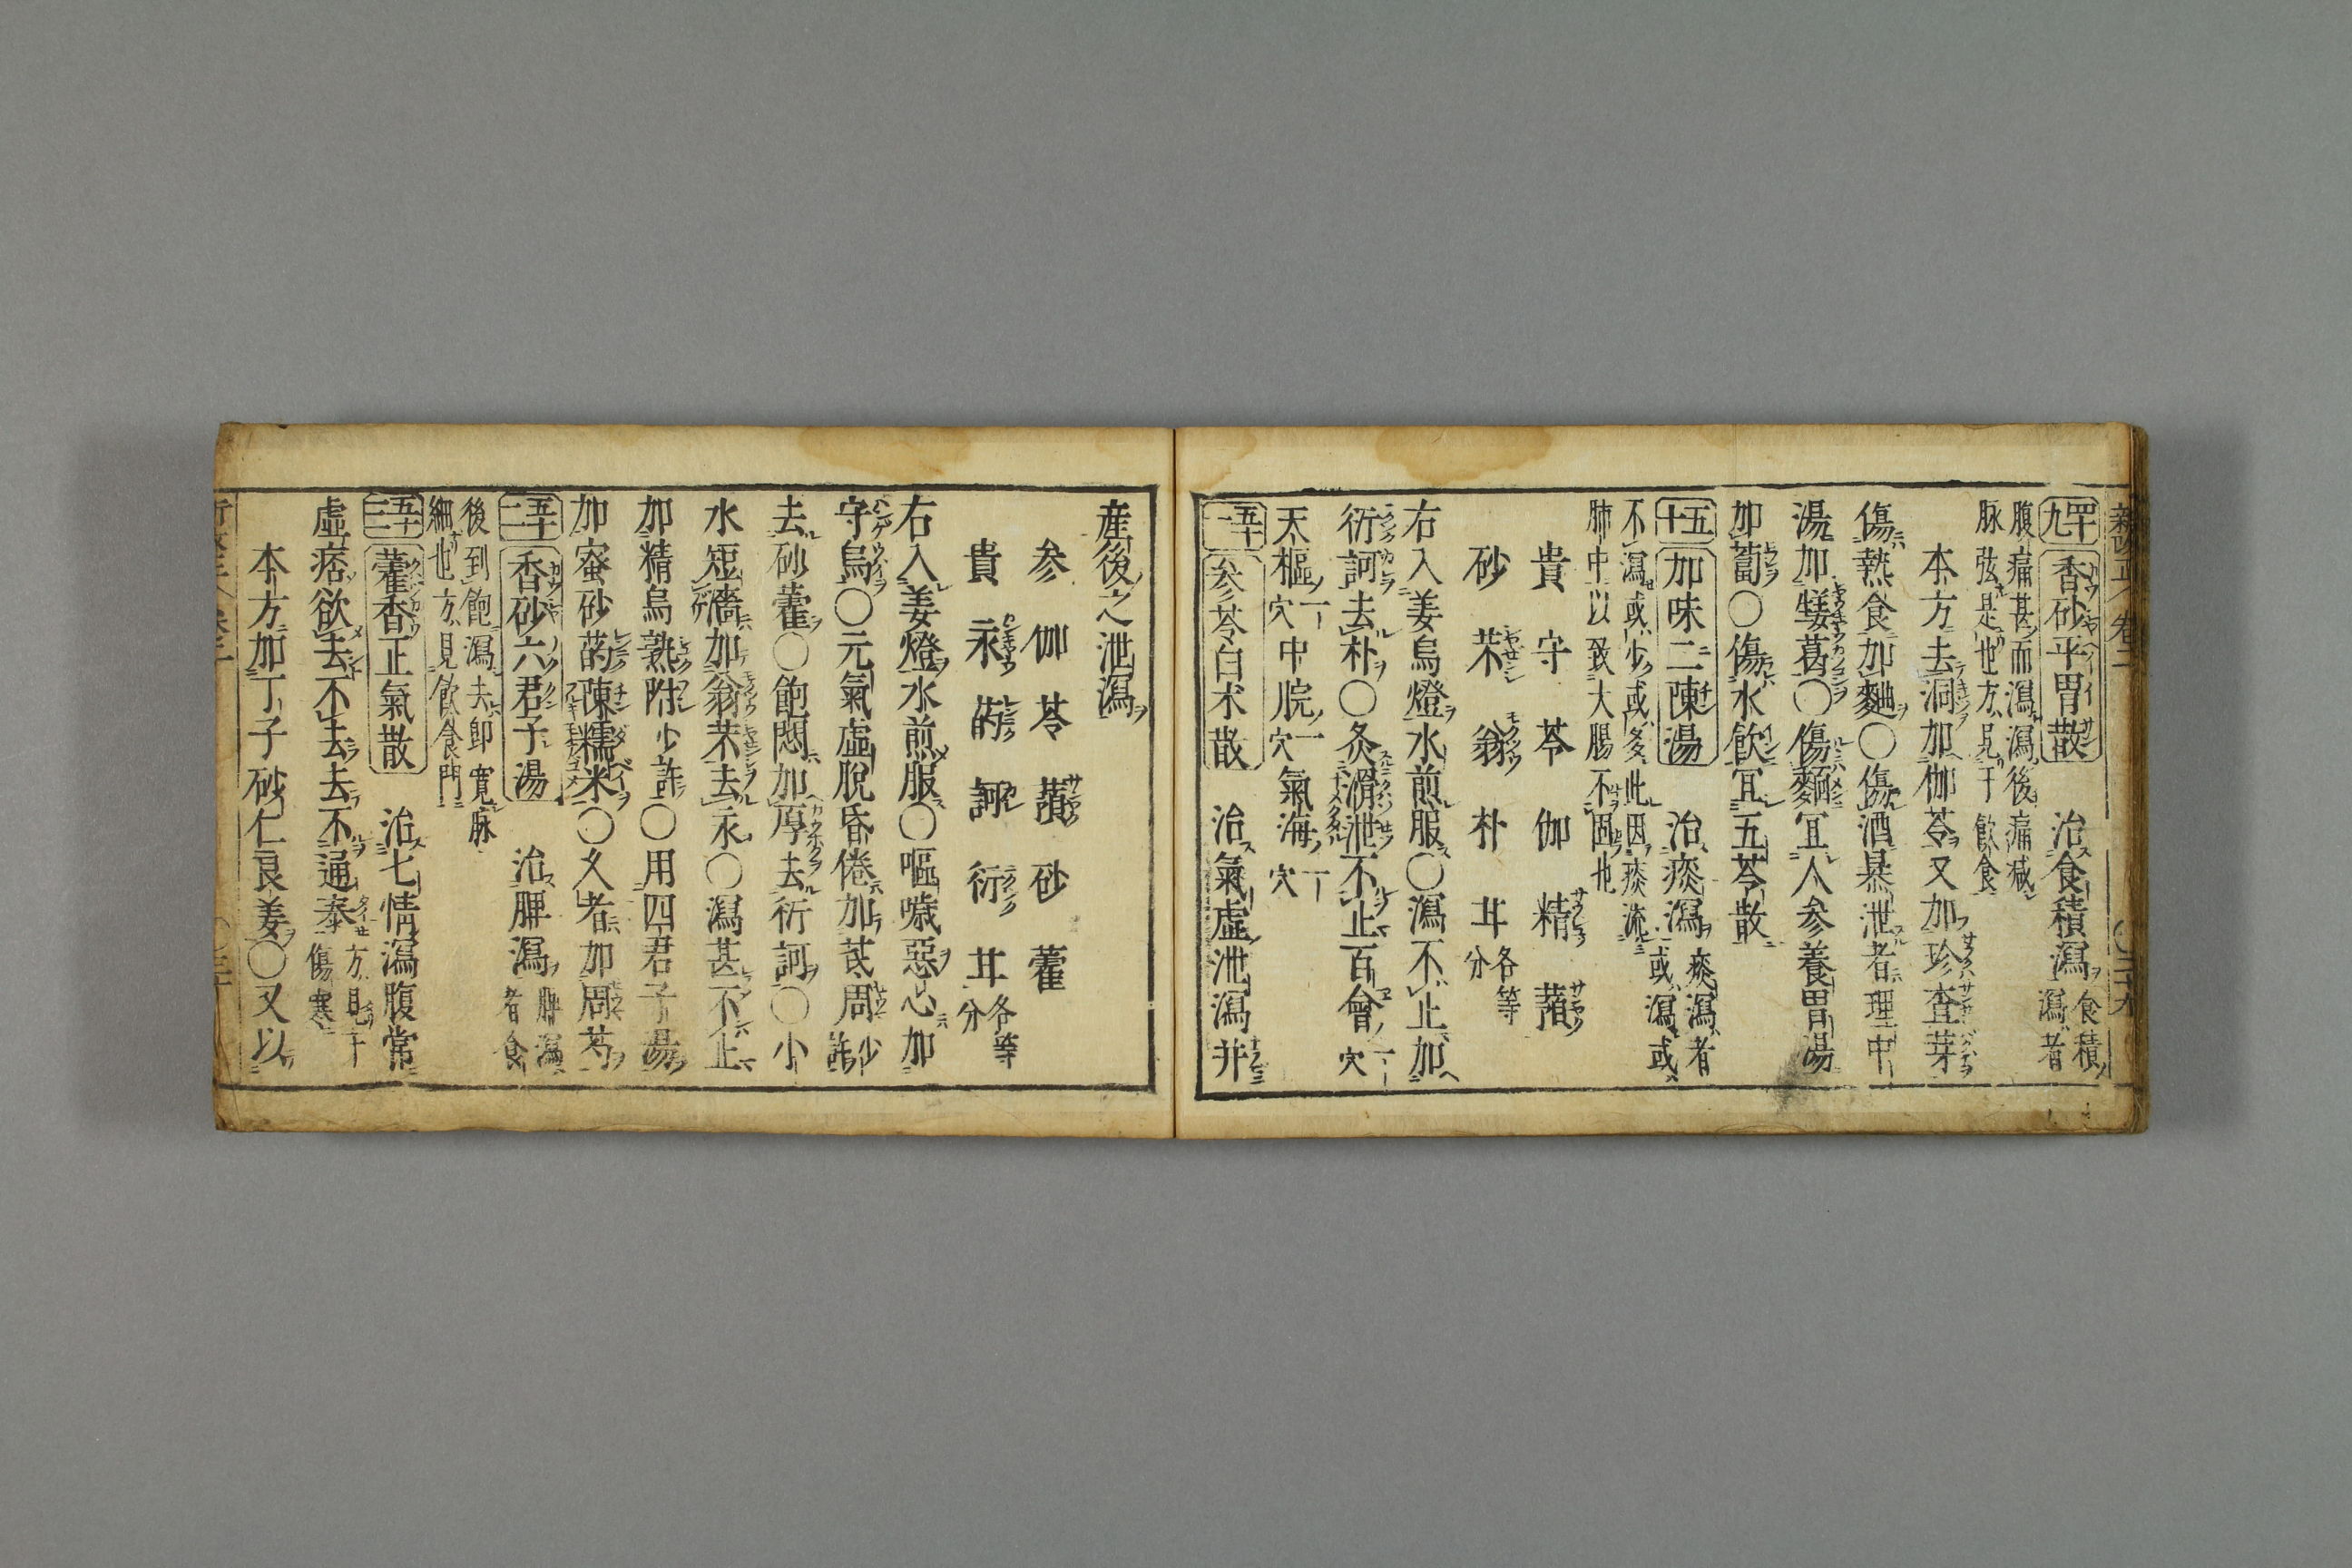 四十九 香砂平胃散 治食積瀉 食積瀉者
腹痛甚而瀉瀉後痛減
脉弦是也方見于飲食
本方去洞加伽苓又加珍查芽
傷熱食加麯〇傷酒暴泄者理中
湯加葛〇傷麵宜人参養胃湯
加蔔〇傷水飲宜五苓散
五十 加味二陳湯 治痰瀉 痰瀉者或瀉或
不瀉或少或多此因痰流
肺中以致大腸不固也
貴 守 苓 伽 精 蘋
砂 朮 翁 朴 甘 各等分
右入姜烏燈水煎服〇瀉不止加
衍訶去朴〇灸滑泄不止百會一穴
天樞二穴中脘一穴氣海一穴
五十一 参苓白朮散 治氣虛泄瀉并
産後之泄瀉
参 伽 苓 蘋 砂 藿
貴 永 菂 訶 衍 甘 各等分
右入姜燈水煎服〇嘔噦惡心加
守烏〇元氣虛脫昏倦加芪周少許
去砂藿〇飽悶加厚去衍訶〇小
水短濇加翁去永〇瀉甚不止
加精烏熟附少許〇用四君子湯
加蜜砂菂陳糯米〇久者加周芍
五十二 香砂六君子湯 治脾瀉 脾瀉者食
後到飽瀉去即寬脉
細也方見飲食門
五十三 藿香正氣散 治七情瀉腹常
虛痞欲去不去去不通泰 方見于傷寒
本方加丁子砂仁良姜〇又以